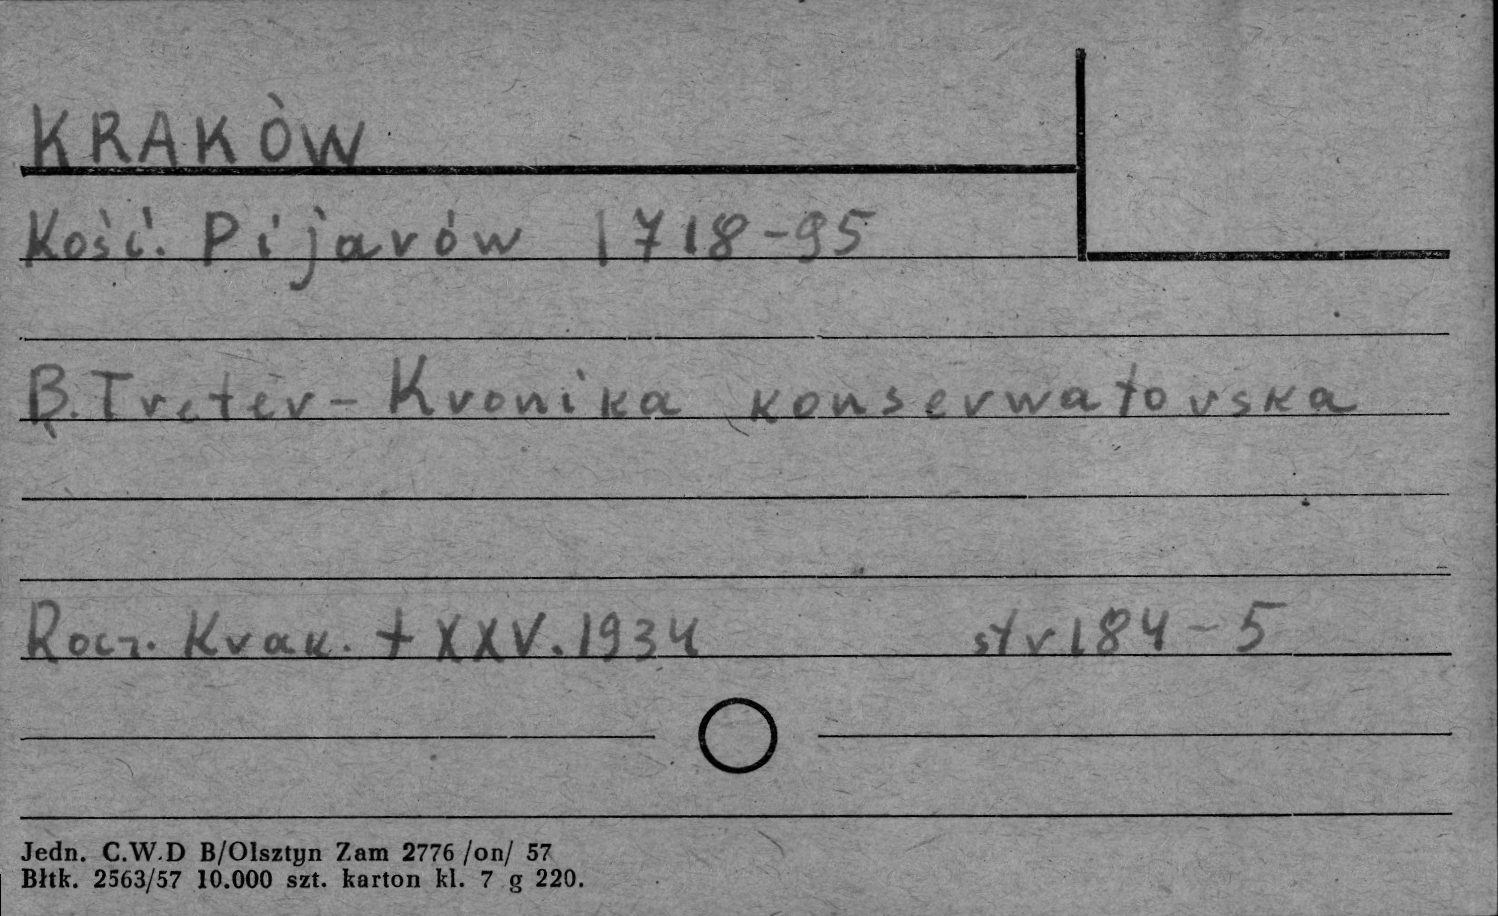 KRAKÓW
Kość. Pijarów 1718-95
B. Treter - Kronika konserwatorska
Rocz. Krak. t XXV. 1934 str 184-5
Jedn. C.W.D B/Olsztyn Zam 2776 /on/ 57
Błtk. 2563/57 10.000 szt. karton kl. 7 g 220.